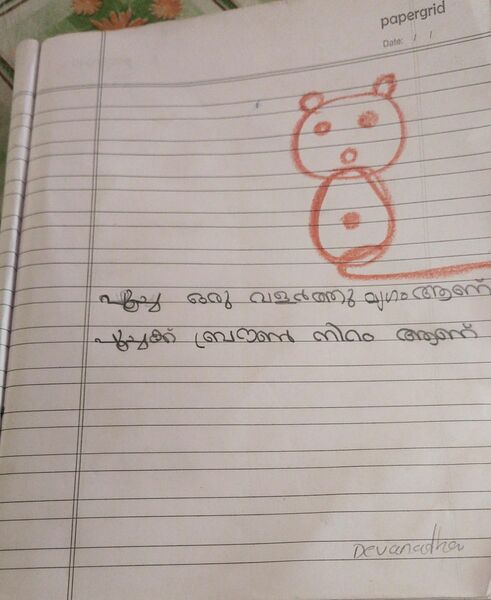 papergrid
Date: / /
പൂച്ച ഒരു വളർത്തു മൃഗം ആണ്
പൂച്ചക്ക് ബ്രൗൺ നിറം ആണ്
Devanadha